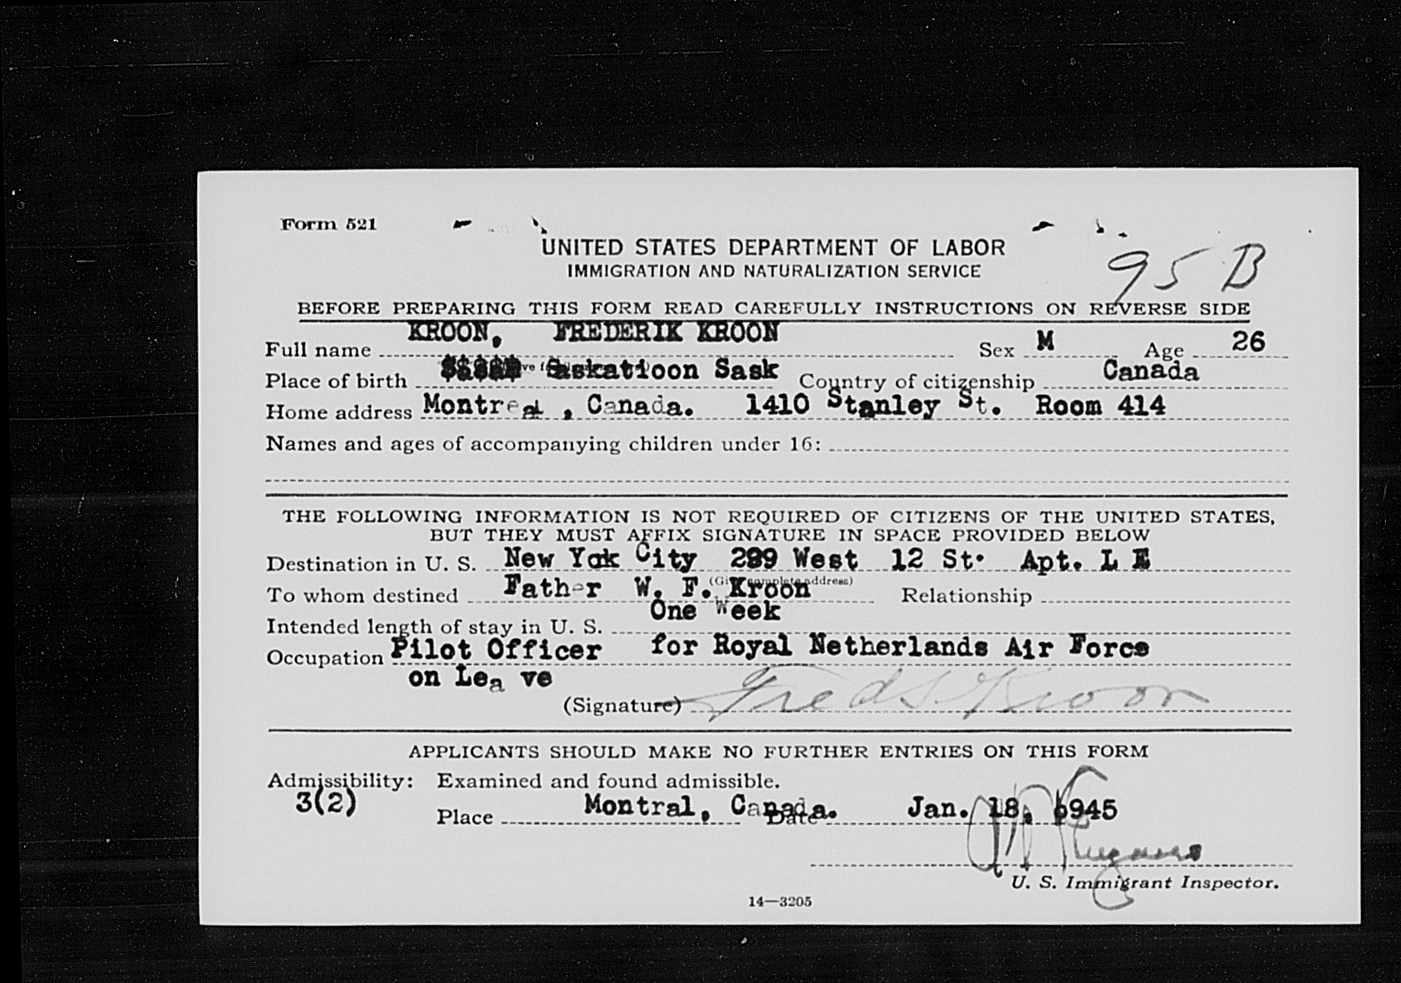 Form 521
UNITED STATES DEPARTMENT OF LABOR
IMMIGRATION AND NATURALIZATION SERVICE
95 B
BEFORE PREPARING THIS FORM READ CAREFULLY INSTRUCTIONS ON REVERSE SIDE
Full name KROON, FREDERIK KROON Sex M Age 26
Place of birth Saskatioon Sask Country of citizenship Canada
Home address Montreal , Canada. 1410 Stanley St. Room 414
Names and ages of accompanying children under 16:
THE FOLLOWING INFORMATION IS NOT REQUIRED OF CITIZENS OF THE UNITED STATES,
BUT THEY MUST AFFIX SIGNATURE IN SPACE PROVIDED BELOW
Destination in U. S. New Yok City 299 West 12 St. Apt. L E
(Give complete address)
To whom destined Father W. F. Kroon Relationship
Intended length of stay in U. S. One Week
Occupation Pilot Officer for Royal Netherlands Air Force
on Lea ve
(Signature) Fred S. Kroon
APPLICANTS SHOULD MAKE NO FURTHER ENTRIES ON THIS FORM
Admissibility: Examined and found admissible.
3(2)
Place Montral, Canada. Date Jan. 18, 1945
U. S. Immigrant Inspector.
14—3205